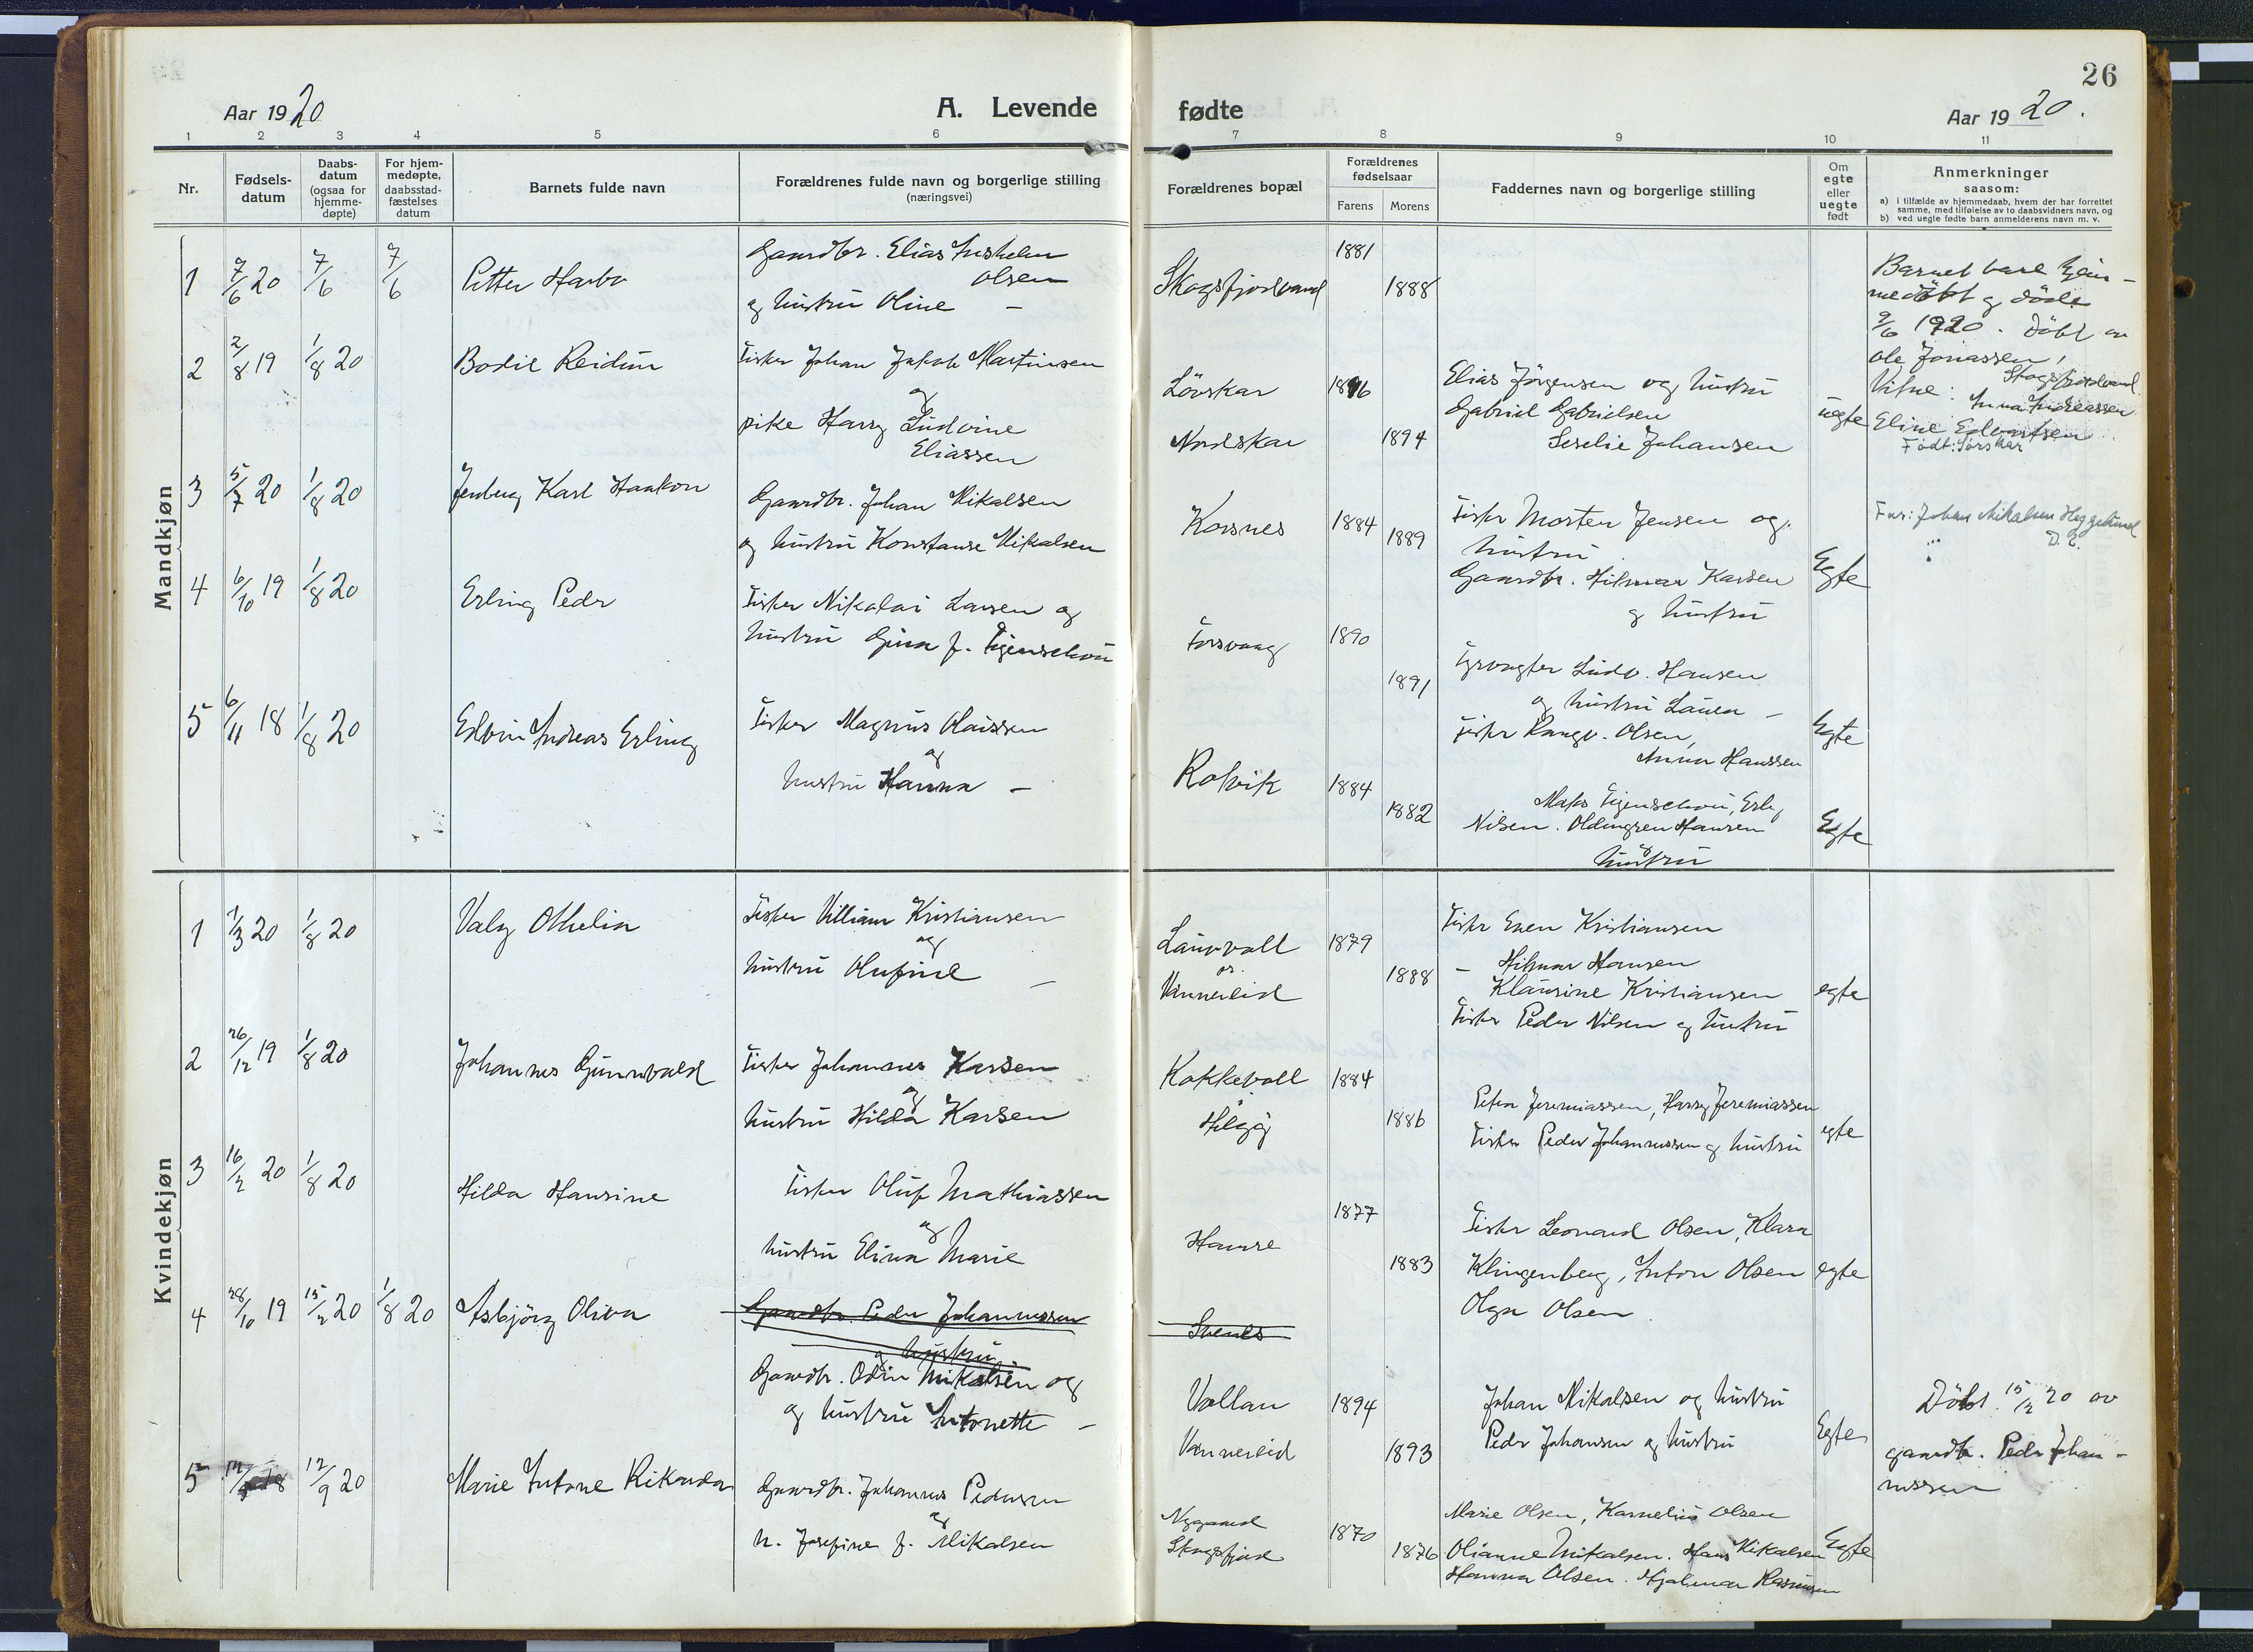 26
Aar 1920
A. Levende
fødte
Aar 1920.
1 2 3 4 5 6 7 8 9 10 11
Nr.
Fødsels-
datum
Daabs-
datum
(ogsaa for
hjemme-
døpte)
For hjem-
medøpte,
daabsstad-
fæstelses
datum
Barnets fulde navn
Forældrenes fulde navn og borgerlige stilling
(næringsvei)
Forældrenes bopæl
Forældrenes
fødselsaar
Farens
Morens
Faddernes navn og borgerlige stilling
Om
egte
eller
uegte
født
Anmerkninger
saasom:
a) i tilfælde av hjemmedaab, hvem der har forrettet
samme, med tilføielse av to daabsvidners navn, og
b) ved uegte fødte barn anmelderens navn m. v.
Mandkjøn
1 7/6 20 7/6 7/6 Petter Harbo
Gaardbr. Elias
Olsen
og hustru Oline –
Skogsfjordvand 1881 1888
Barnet bare hjem-
medøbt og døde
9/6 1920. Døbt av
Ole Jonassen,
Skogsfjordvand
Vitne: Anna Andreassen
Eline Edvartsen
2 2/8 19 1/8 20 Bodil Reidun
Fisker Johan Jakob Martinsen
og
pike Harry Ludvine
Eliassen
Lövskar 1896
Nordskar 1894
Elias Jørgensen og hustru
Gabriel Gabrielsen
Seselie Johansen
uegte
Født: Sørskar
3 5/7 20 1/8 20 Jenberg Karl Haakon
Gaardbr. Johan Mikalsen
og hustru Konstanse Mikalsen
Korsnes 1884 1889
Fisker Morten Jensen og
hustru
Gaardbr. Hilmar Karlsen
og hustru
Egte
Far: Johan Mikalsen Heggelund
D. E.
4 6/10 19 1/8 20 Erling Peder
Fisker Nikolai Larsen og
hustru Gina f. Figenschou
Torsvaag 1890 1891
Fyrvagter Ludv. Hansen
og hustru Laura –
Fisker Rangv. Olsen,
Anna Hanssen
Egte
5 6/11 18 1/8 20 Edvin Andreas Erling
Fisker Magnus Olaissen
og
hustru Hanna –
Rotvik 1884 1882
Maks Figenschou, Erling
Nilsen. Hansen
og
hustru
Egte
Kvindekjøn
1 1/3 20 1/8 20 Valy Othelia
Fisker Villiam Kristiansen
og
hustru Olufine –
Laurvoll
Vannereid
1879 1888
Fisker Even Kristiansen
– Hilmar Hansen
Klausine Kristiansen
Fisker Peder Nilsen og hustru
egte
2 26/12 19 1/8 20 Johannes Gunnvald
Fisker Johannes Karlsen
og
hustru Hilda Karlsen
Kokkevoll
Helgøy
1884 1886
Peter Jeremiassen, Harry Jeremiassen
Fisker Peder Johannessen og hustru
egte
3 16/2 20 1/8 20 Hilda Hansine
Fisker Oluf Mathiassen
og
hustru Elina Marie
Hamre 1877 1883
Fisker Leonard Olsen, Klara
Klingenberg, Anton Olsen
Olga Olsen
egte
4 28/10 19 15/2 20 1/8 20 Asbjörg Oliva
Gaardbr. Peder Johannessen
og hustru
Gaardbr. Odin Mikalsen og
og hustru Antonette –
Vollan
Vannereid
1894 1893
Johan Mikalsen og hustru
Peder Johansen og hustru
Egte
Döbt 15/2 20 av
gaardbr. Peder Johan-
nessen
5 12/9 20 Marie Antone Rikarda
Gaardbr. Johannes Pedersen
og
h. Josefine f. Mikalsen
Nygaard
Skogsfjord
1870 1876
Marie Olsen, Kornelius Olsen
Olianne Mikalsen. Hans Mikalsen
Hanna Olsen. Hjalmar Rasmussen
Egte